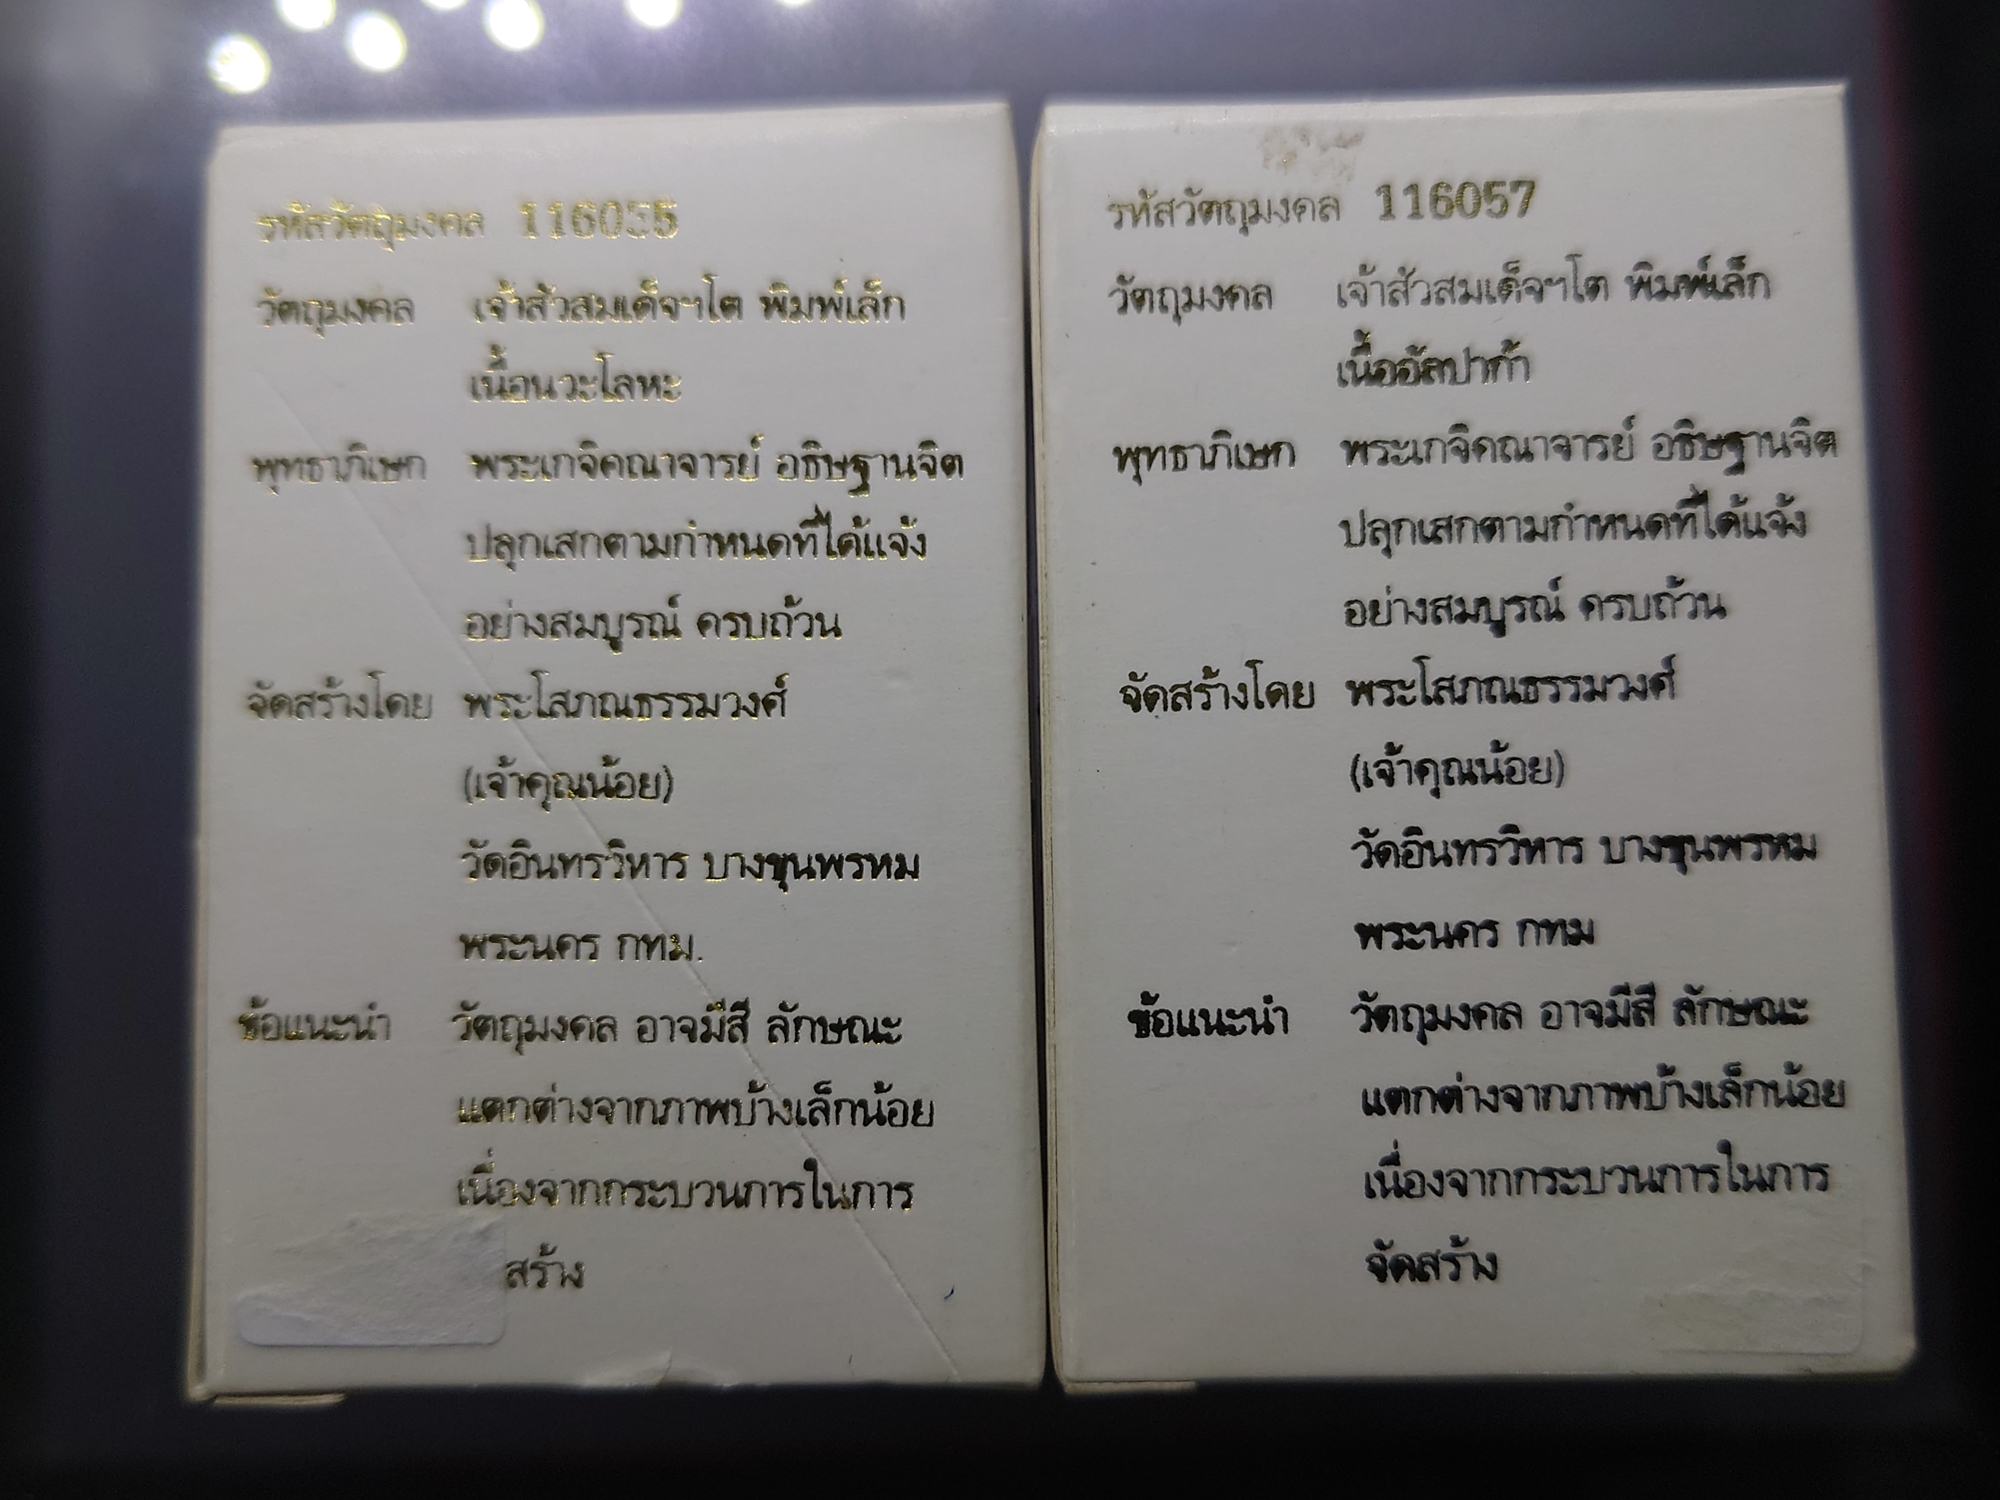 รหัสวัตถุมงคล 116055
วัตถุมงคล เจ้าสัวสมเด็จฯโต พิมพ์เล็ก
เนื้อนวะโลหะ
พุทธาภิเษก พระเกจิคณาจารย์ อธิษฐานจิต
ปลุกเสกตามกำหนดที่ได้แจ้ง
อย่างสมบูรณ์ ครบถ้วน
จัดสร้างโดย พระโสภณธรรมวงศ์
(เจ้าคุณน้อย)
วัดอินทรวิหาร บางขุนพรหม
พระนคร กทม.
ข้อแนะนำ วัตถุมงคล อาจมีสี ลักษณะ
แตกต่างจากภาพบ้างเล็กน้อย
เนื่องจากกระบวนการในการ
สร้าง
รหัสวัตถุมงคล 116057
วัตถุมงคล เจ้าสัวสมเด็จฯโต พิมพ์เล็ก
เนื้ออัลปาก้า
พุทธาภิเษก พระเกจิคณาจารย์ อธิษฐานจิต
ปลุกเสกตามกำหนดที่ได้แจ้ง
อย่างสมบูรณ์ ครบถ้วน
จัดสร้างโดย พระโสภณธรรมวงศ์
(เจ้าคุณน้อย)
วัดอินทรวิหาร บางขุนพรหม
พระนคร กทม
ข้อแนะนำ วัตถุมงคล อาจมีสี ลักษณะ
แตกต่างจากภาพบ้างเล็กน้อย
เนื่องจากกระบวนการในการ
จัดสร้าง